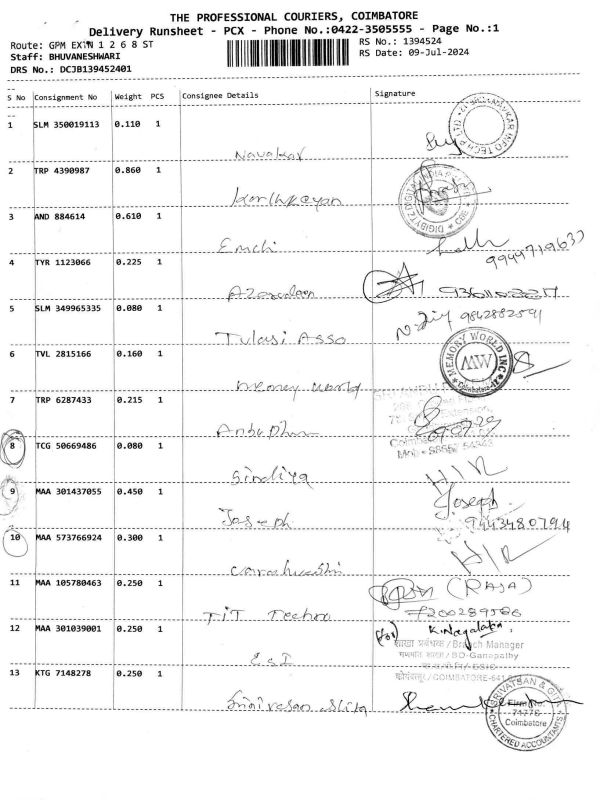 THE PROFESSIONAL COURIERS, COIMBATORE
Delivery Runsheet - PCX - Phone No.:0422-3505555 - Page No.:1
Route: GPM EXTN 1 2 6 8 ST
RS No.: 1394524
Staff: BHUVANESHWARI
RS Date: 09-Jul-2024
DRS No.: DCJB139452401
S No Consignment No Weight PCS Consignee Details Signature
1 SLM 350019113 0.110 1
Navakar
2 TRP 4390987 0.860 1
Karthikeyan
3 AND 884614 0.610 1
Emchi
9944719637
4 TYR 1123066 0.225 1
5 SLM 349965335 0.080 1
9842882591
Tulasi Asso
6 TVL 2815166 0.160 1
MEMORY WORLD INC
MW
Coimbatore
memory world
7 TRP 6287433 0.215 1
8 TCG 50669486 0.080 1
Sindiya
9 MAA 301437055 0.450 1
Joseph
Joseph
9443480794
10 MAA 573766924 0.300 1
11 MAA 105780463 0.250 1
(RAJA)
TIT Techno
12 MAA 301039001 0.250 1
(for) K.Nagalatha
शाखा प्रबंधक / Branch Manager
/ BO-Ganapathy
ESI
कोयंबत्तूर / COIMBATORE-641
13 KTG 7148278 0.250 1
Srinivasan
SRIVATSAN & GUPTA
Firm No.
Coimbatore
CHARTERED ACCOUNTANTS